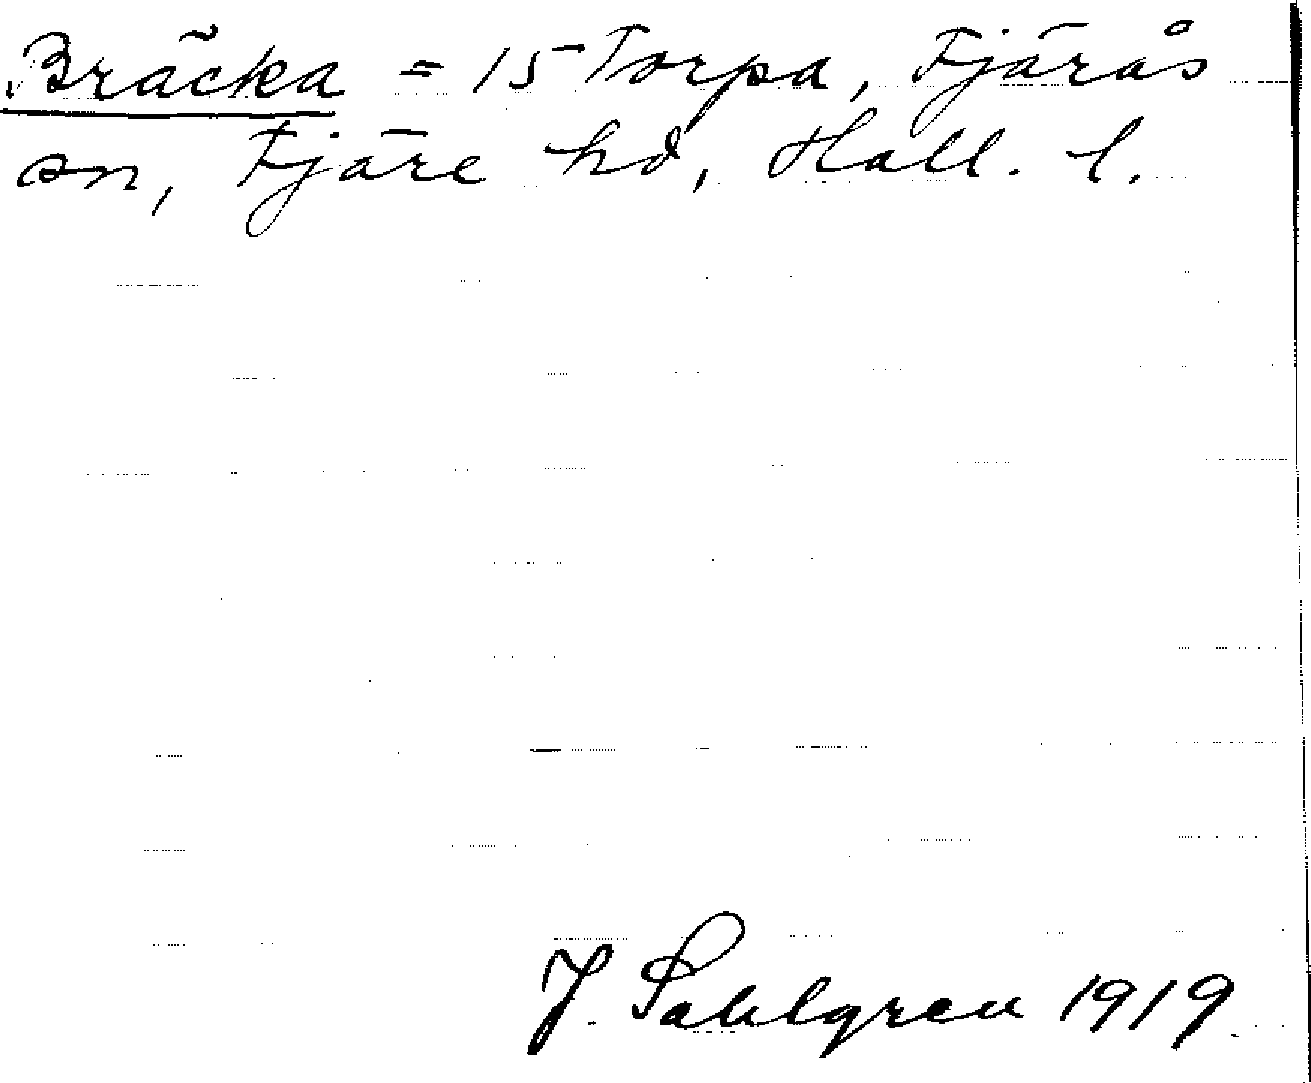 Bräcka = 15 Torpa, Fjärås
sn, Fjäre hd, Hall. l.
J. Sahlgren 1919